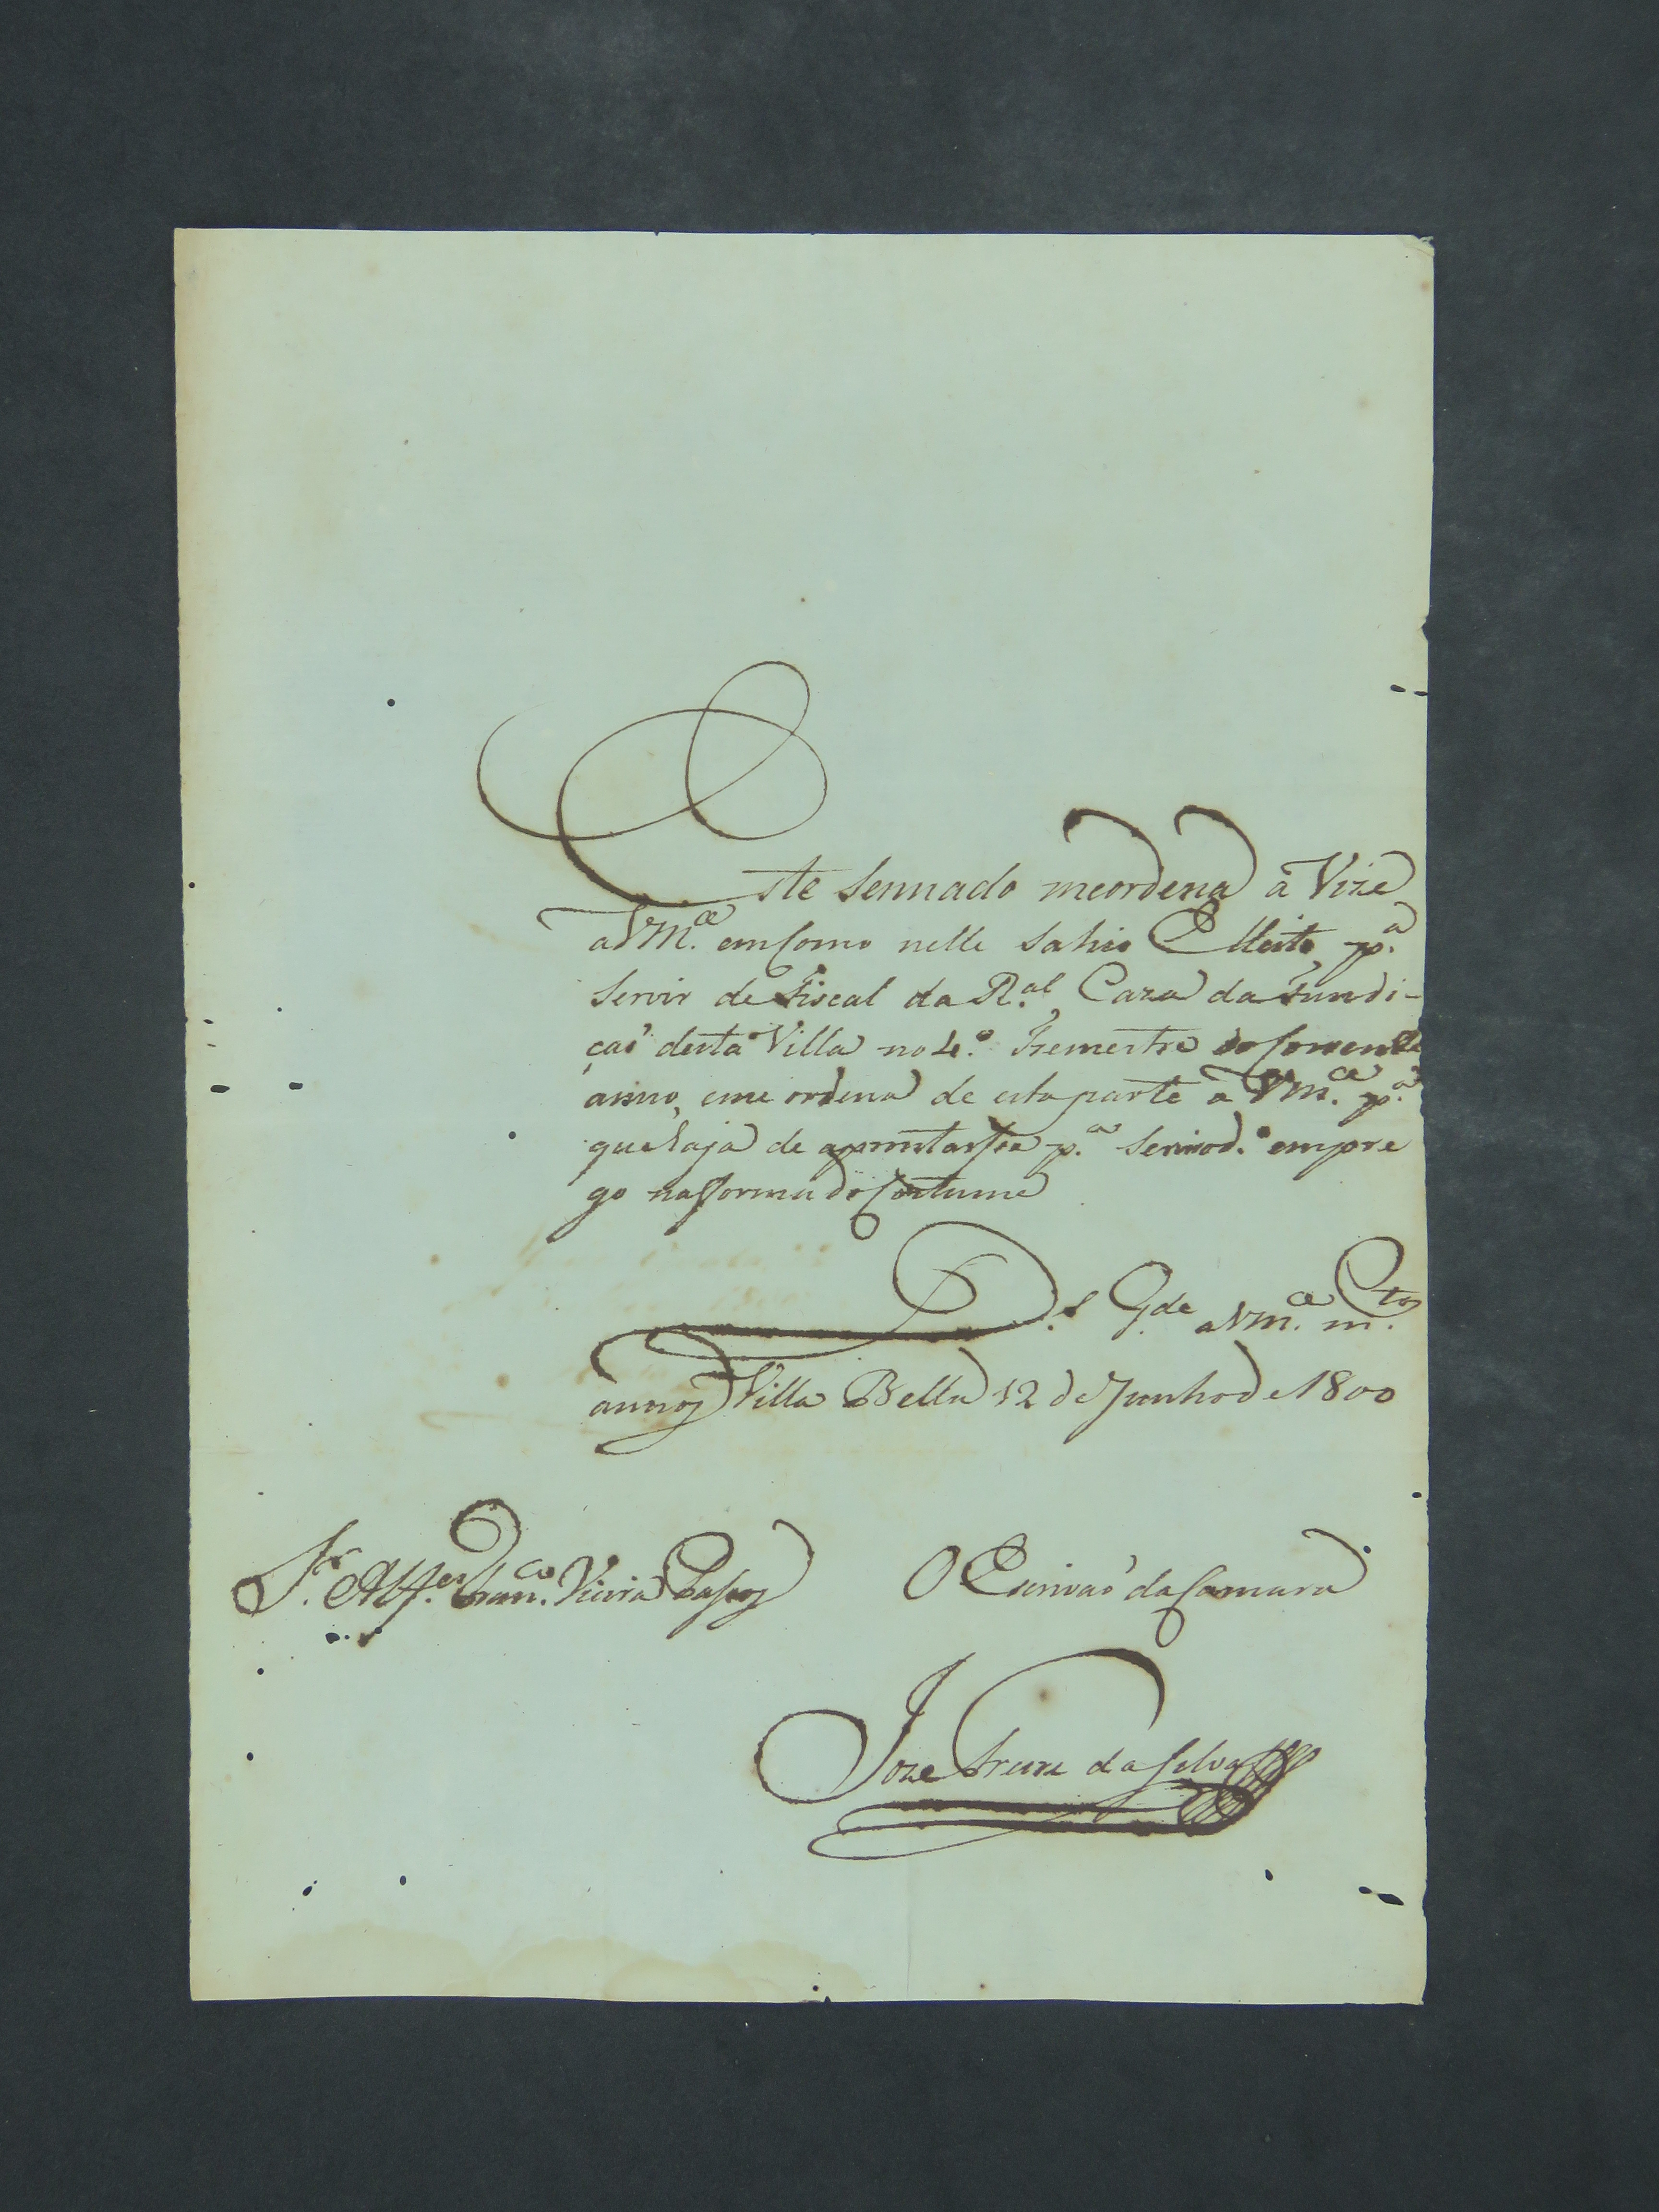 Este Sennado meordena a Vize
aVM.ce em Como nelle Sahio Elleito p.a
Servir de Fiscal da R.al Caza da Fundi-
çaõ desta Villa no 4.o Tremestre do Corrente
anno, eme ordena de esta parte a VM.ce p.a
que haja de apromtarsse p.a Servir o d.o empre
go na fforma do Costume
D.s G.de aVM.ce m.tos
annos Villa Bella 12 de Junho de 1800
S.r Alf.es Fran.co Vieira Passos
O Escrivaõ da Camara
Joze Freire da Silva